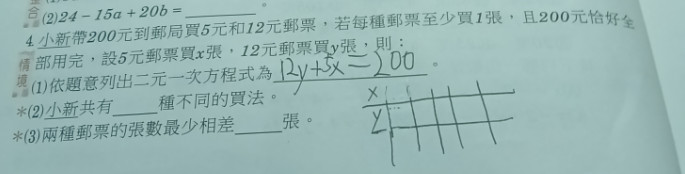 (2)24－15a＋20b＝________。
4.小新帶200元到郵局買5元和12元郵票，若每種郵票至少買1張，且200元恰好全
部用完，設5元郵票買x張，12元郵票買y張，則：
(1)依題意列出二元一次方程式為 12y+5x=200 。
＊(2)小新共有____種不同的買法。
＊(3)兩種郵票的張數最少相差____張。
情境
x
y